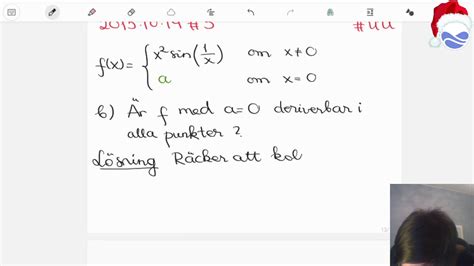 f(x)= { x² sin(1/x) om x≠0
a om x=0
b) Är f med a=0 deriverbar i
alla punkter?
Lösning Räcker att kol